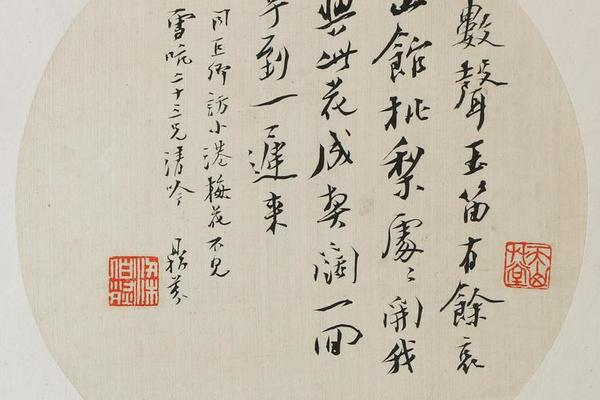 數聲玉笛有餘哀
館桃梨處〻開我
與此花成契闊一回
到一遲來
同臣卿訪小港梅花不見
雪吭二十三兄清吟 鼎芬